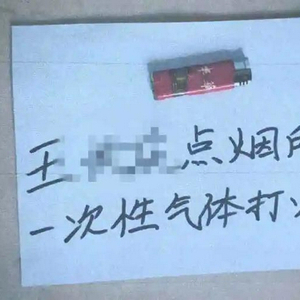 王 点烟
一次性气体打